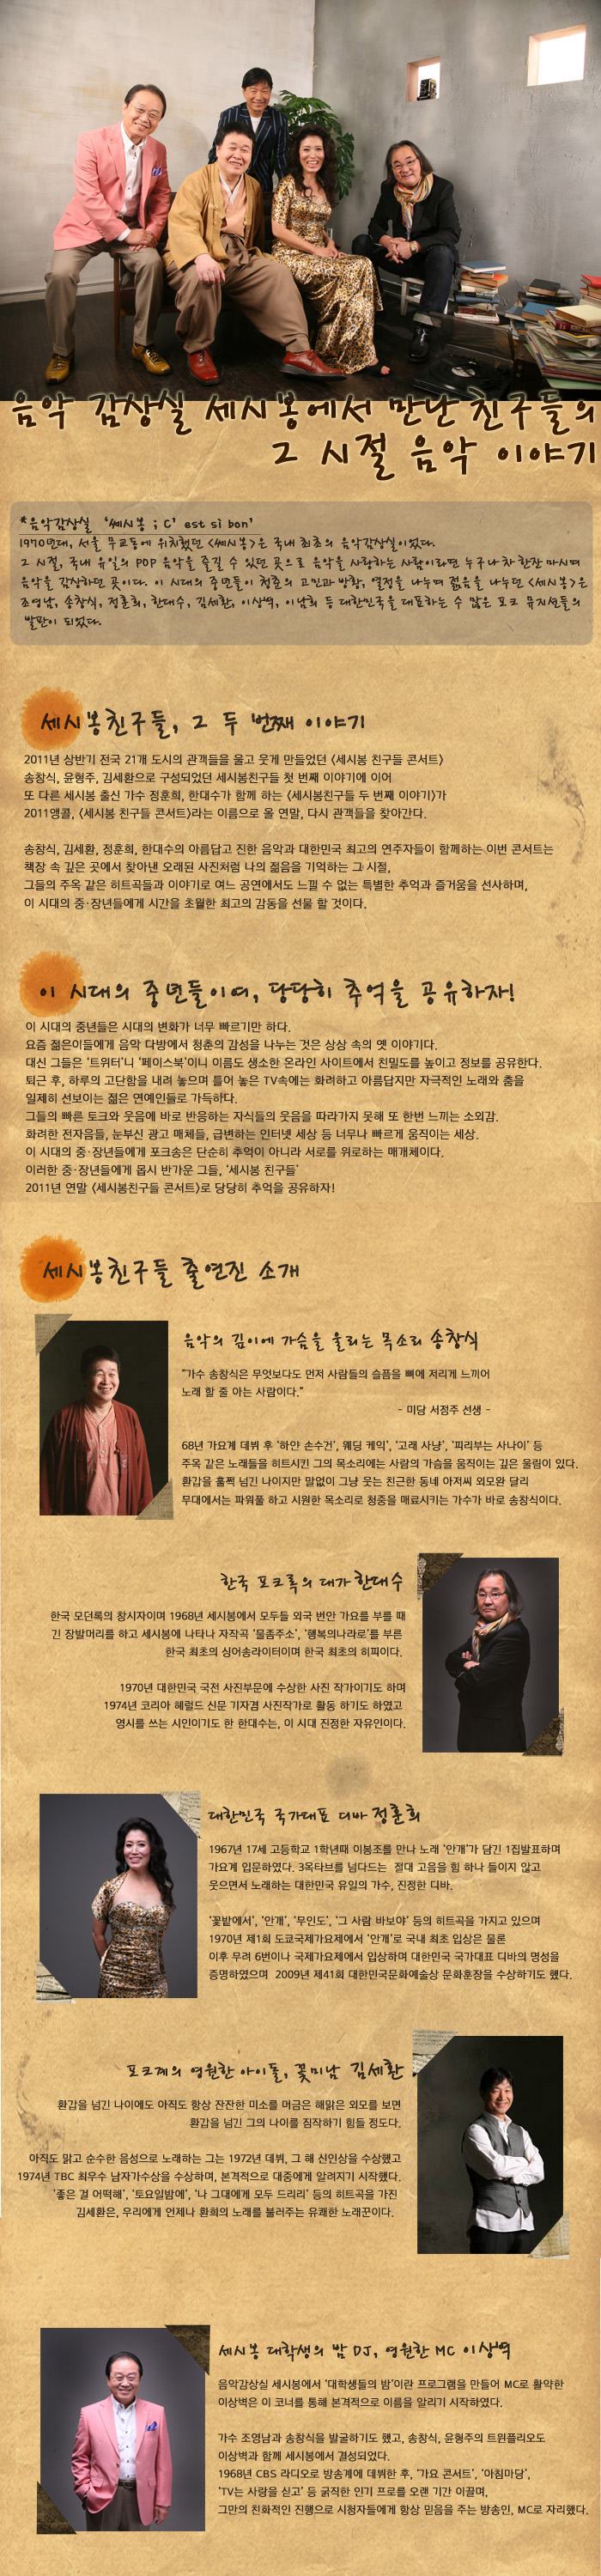 음악 감상실 세시봉에서 만난 친구들의
그 시절 음악 이야기
*음악감상실 '쎄시봉 ; C' est si bon'
1970년대, 서울 무교동에 위치했던 <쎄시봉>은 국내 최초의 음악감상실이었다.
그 시절, 국내 유일의 POP 음악을 즐길 수 있던 곳으로 음악을 사랑하는 사람이라면 누구나 차 한잔 마시며
음악을 감상하던 곳이다. 이 시대의 중년들이 청춘의 고민과 방황, 열정을 나누며 젊음을 나누던 <세시봉>은
조영남, 송창식, 정훈희, 한대수, 김세환, 이상벽, 이남희 등 대한민국을 대표하는 수 많은 포크 뮤지션들의
발판이 되었다.
세시봉친구들, 그 두 번째 이야기
2011년 상반기 전국 21개 도시의 관객들을 울고 웃게 만들었던 <세시봉 친구들 콘서트>
송창식, 윤형주, 김세환으로 구성되었던 세시봉친구들 첫 번째 이야기에 이어
또 다른 세시봉 출신 가수 정훈희, 한대수가 함께 하는 <세시봉친구들 두 번째 이야기>가
2011앵콜, <세시봉 친구들 콘서트>라는 이름으로 올 연말, 다시 관객들을 찾아간다.
송창식, 김세환, 정훈희, 한대수의 아름답고 진한 음악과 대한민국 최고의 연주자들이 함께하는 이번 콘서트는
책장 속 깊은 곳에서 찾아낸 오래된 사진처럼 나의 젊음을 기억하는 그 시절,
그들의 주옥 같은 히트곡들과 이야기로 여느 공연에서도 느낄 수 없는 특별한 추억과 즐거움을 선사하며,
이 시대의 중·장년들에게 시간을 초월한 최고의 감동을 선물 할 것이다.
이 시대의 중년들이여, 당당히 추억을 공유하자!
이 시대의 중년들은 시대의 변화가 너무 빠르기만 하다.
요즘 젊은이들에게 음악 다방에서 청춘의 감성을 나누는 것은 상상 속의 옛 이야기다.
대신 그들은 '트위터'니 '페이스북'이니 이름도 생소한 온라인 사이트에서 친밀도를 높이고 정보를 공유한다.
퇴근 후, 하루의 고단함을 내려 놓으며 틀어 놓은 TV속에는 화려하고 아름답지만 자극적인 노래와 춤을
일제히 선보이는 젊은 연예인들로 가득하다.
그들의 빠른 토크와 웃음에 바로 반응하는 자식들의 웃음을 따라가지 못해 또 한번 느끼는 소외감.
화려한 전자음들, 눈부신 광고 매체들, 급변하는 인터넷 세상 등 너무나 빠르게 움직이는 세상.
이 시대의 중·장년들에게 포크송은 단순히 추억이 아니라 서로를 위로하는 매개체이다.
이러한 중·장년들에게 몹시 반가운 그들, '세시봉 친구들'
2011년 연말 <세시봉친구들 콘서트>로 당당히 추억을 공유하자!
세시봉친구들 출연진 소개
음악의 깊이에 가슴을 울리는 목소리 송창식
"가수 송창식은 무엇보다도 먼저 사람들의 슬픔을 뼈에 저리게 느끼어
노래 할 줄 아는 사람이다."
- 미당 서정주 선생 -
68년 가요계 데뷔 후 '하얀 손수건', 웨딩 케익', '고래 사냥', '피리부는 사나이' 등
주옥 같은 노래들을 히트시킨 그의 목소리에는 사람의 가슴을 움직이는 깊은 울림이 있다.
환갑을 훌쩍 넘긴 나이지만 말없이 그냥 웃는 친근한 동네 아저씨 외모완 달리
무대에서는 파워풀 하고 시원한 목소리로 청중을 매료시키는 가수가 바로 송창식이다.
한국 포크록의 대가 한대수
한국 모던록의 창시자이며 1968년 세시봉에서 모두들 외국 번안 가요를 부를 때
긴 장발머리를 하고 세시봉에 나타나 자작곡 '물좀주소', '행복의나라로'를 부른
한국 최초의 싱어송라이터이며 한국 최초의 히피이다.
1970년 대한민국 국전 사진부문에 수상한 사진 작가이기도 하며
1974년 코리아 헤럴드 신문 기자겸 사진작가로 활동 하기도 하였고
영시를 쓰는 시인이기도 한 한대수는, 이 시대 진정한 자유인이다.
대한민국 국가대표 디바 정훈희
1967년 17세 고등학교 1학년때 이봉조를 만나 노래 '안개'가 담긴 1집발표하며
가요계 입문하였다. 3옥타브를 넘다드는 절대 고음을 힘 하나 들이지 않고
웃으면서 노래하는 대한민국 유일의 가수, 진정한 디바.
'꽃밭에서', '안개', '무인도', '그 사람 바보야' 등의 히트곡을 가지고 있으며
1970년 제1회 도쿄국제가요제에서 '안개'로 국내 최초 입상은 물론
이후 무려 6번이나 국제가요제에서 입상하며 대한민국 국가대표 디바의 명성을
증명하였으며 2009년 제41회 대한민국문화예술상 문화훈장을 수상하기도 했다.
포크계의 영원한 아이돌, 꽃미남 김세환
환갑을 넘긴 나이에도 아직도 항상 잔잔한 미소를 머금은 해맑은 외모를 보면
환갑을 넘긴 그의 나이를 짐작하기 힘들 정도다.
아직도 맑고 순수한 음성으로 노래하는 그는 1972년 데뷔, 그 해 신인상을 수상했고
1974년 TBC 최우수 남자가수상을 수상하며, 본격적으로 대중에게 알려지기 시작했다.
'좋은 걸 어떡해', '토요일밤에', '나 그대에게 모두 드리리' 등의 히트곡을 가진
김세환은, 우리에게 언제나 환희의 노래를 불러주는 유쾌한 노래꾼이다.
세시봉 대학생의 밤 DJ, 영원한 MC 이상벽
음악감상실 세시봉에서 '대학생들의 밤'이란 프로그램을 만들어 MC로 활약한
이상벽은 이 코너를 통해 본격적으로 이름을 알리기 시작하였다.
가수 조영남과 송창식을 발굴하기도 했고, 송창식, 윤형주의 트윈폴리오도
이상벽과 함께 세시봉에서 결성되었다.
1968년 CBS 라디오로 방송계에 데뷔한 후, '가요 콘서트', '아침마당',
'TV는 사랑을 싣고' 등 굵직한 인기 프로를 오랜 기간 이끌며,
그만의 친화적인 진행으로 시청자들에게 항상 믿음을 주는 방송인, MC로 자리했다.